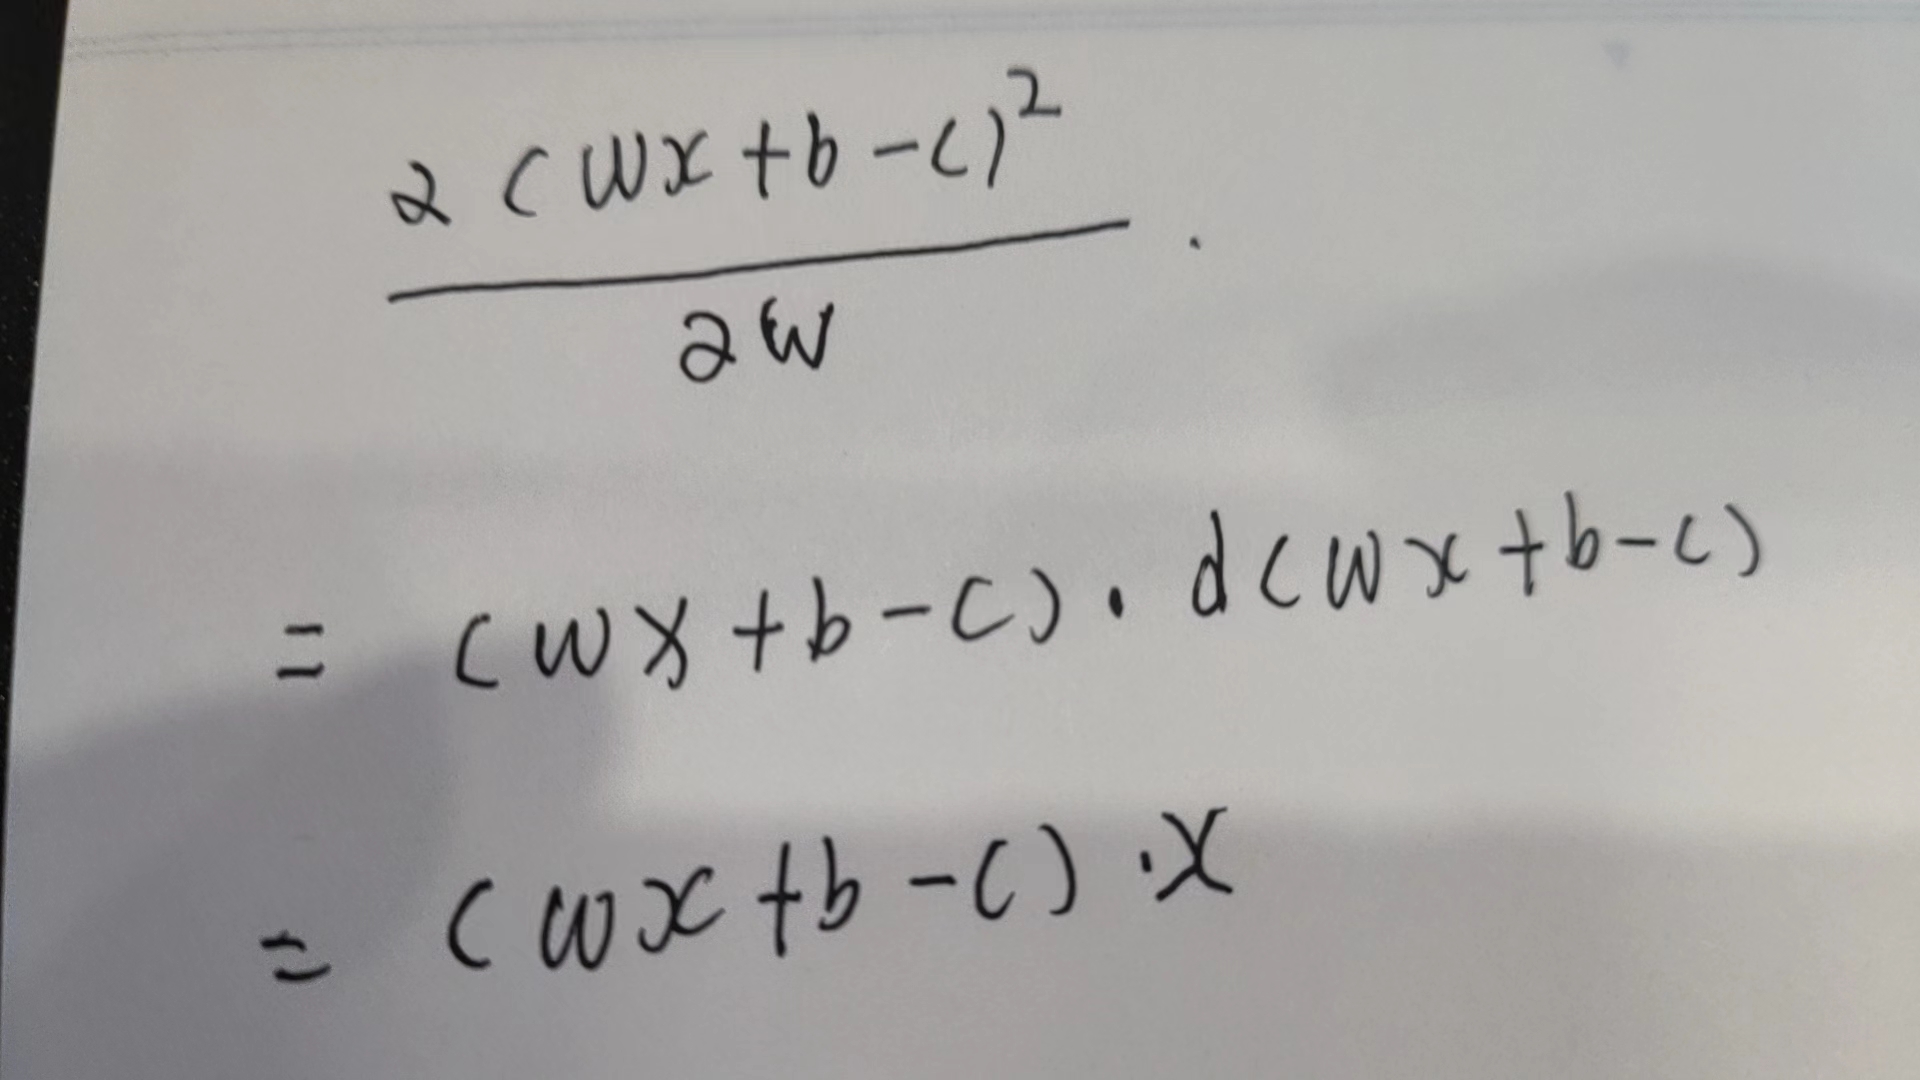 2 (wx + b - c)²
2w .
= (wx + b - c) · d(wx + b - c)
= (wx + b - c) · x